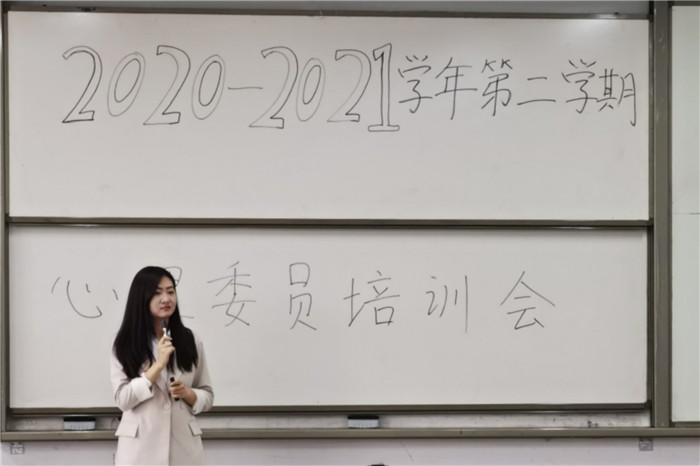 2020-2021学年第二学期
心理委员培训会